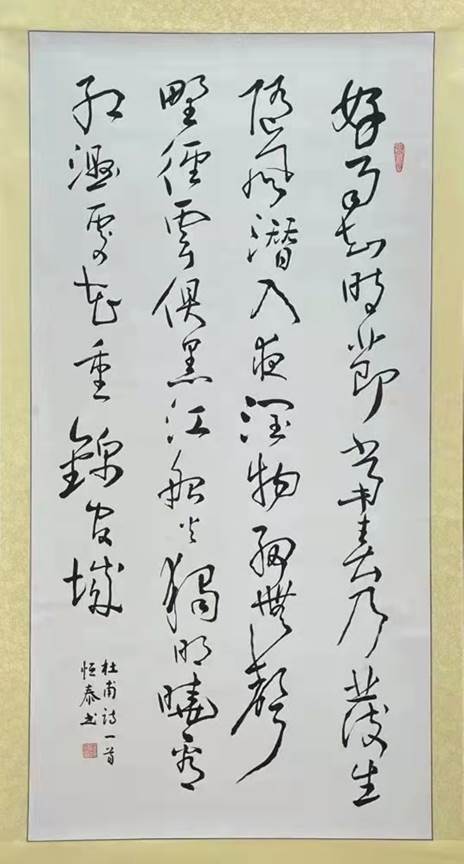 好雨知時節當春乃發生
隨風潛入夜潤物細無聲
野徑雲俱黑江船火獨明曉看
紅濕處花重錦官城
杜甫詩一首
恒泰书